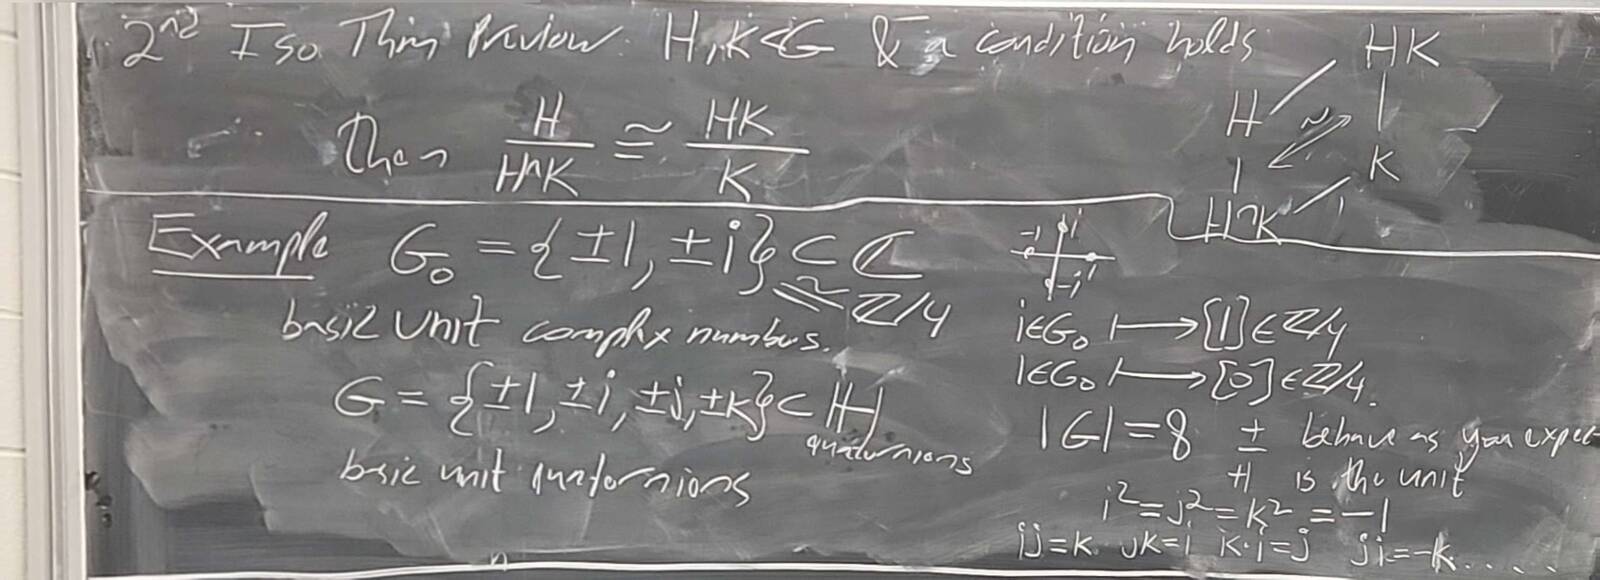 2nd Iso Thm Preview: H, K < G & a condition holds
Then H/H∩K ≅ HK/K
HK
H ≅ K
H∩K
Example G₀ = {±1, ±i} ⊂ ℂ
≅ ℤ/4
-1 i 1 -i
basic unit complex numbers.
i∈G₀ ⟼ [1] ∈ ℤ/4
1∈G₀ ⟼ [0] ∈ ℤ/4.
G = {±1, ±i, ±j, ±k} ⊂ ℍ
quaternions
basic unit quaternions
|G| = 8 ± behave as you expect
+1 is the unit
i² = j² = k² = -1
ij=k jk=i k·i=j ji=-k.....